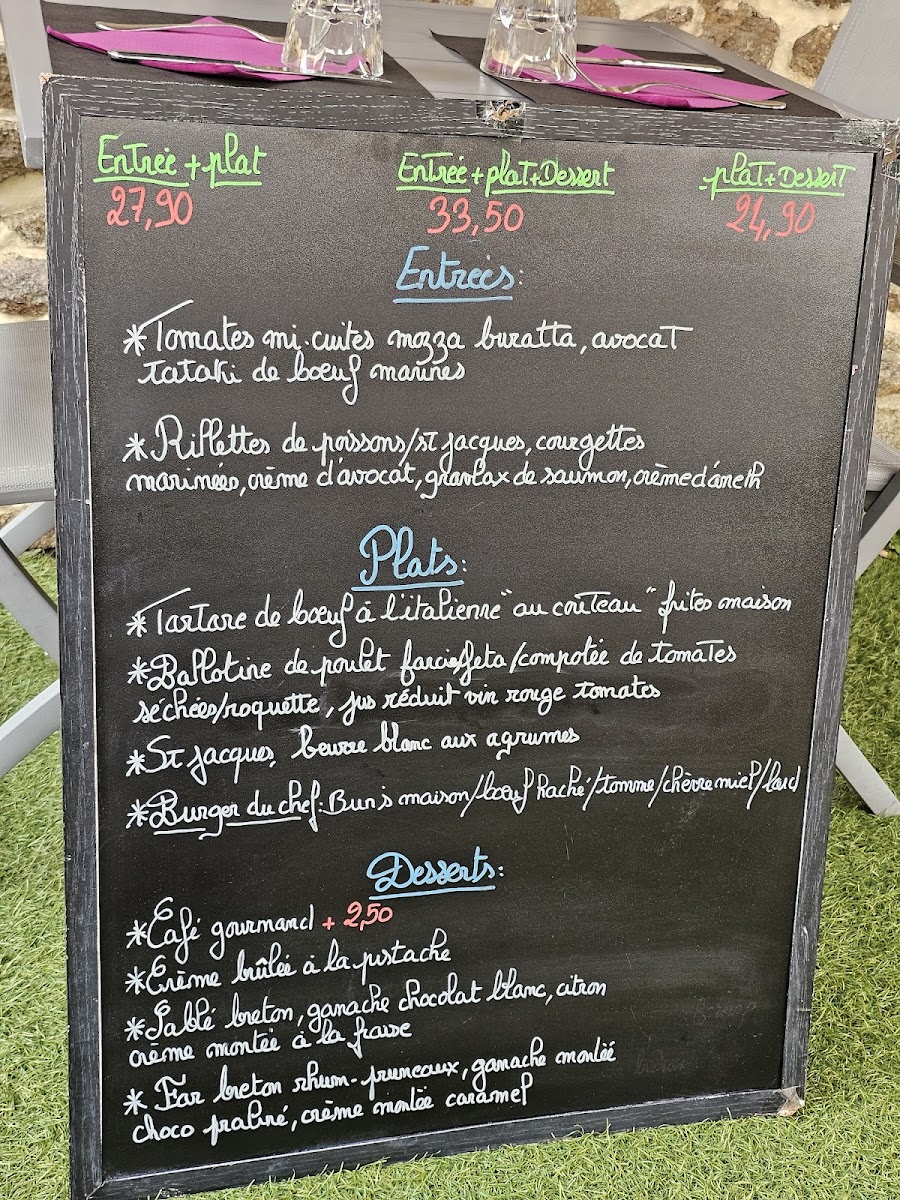 Entrée + plat
27,90
Entrée + plat + Dessert
33,50
plat + Dessert
24,90
Entrées:
* Tomates mi-cuites mozza buratta, avocat
tataki de boeuf marinés
* Rillettes de poissons/st jacques, courgettes
marinées, crème d'avocat, gravlax de saumon, crème d'aneth
Plats:
* Tartare de boeuf à l'italienne "au couteau" frites maison
* Ballotine de poulet farcie feta/compotée de tomates
séchées/roquette, jus réduit vin rouge tomates
* St jacques, beurre blanc aux agrumes
* Burger du chef: Bun's maison/boeuf haché/tomme/chèvre miel/lard
Desserts:
* Café gourmand + 2,50
* Crème brûlée à la pistache
* Sablé breton, ganache chocolat blanc, citron
crème montée à la fraise
* Far breton rhum-pruneaux, ganache montée
choco praliné, crème montée caramel